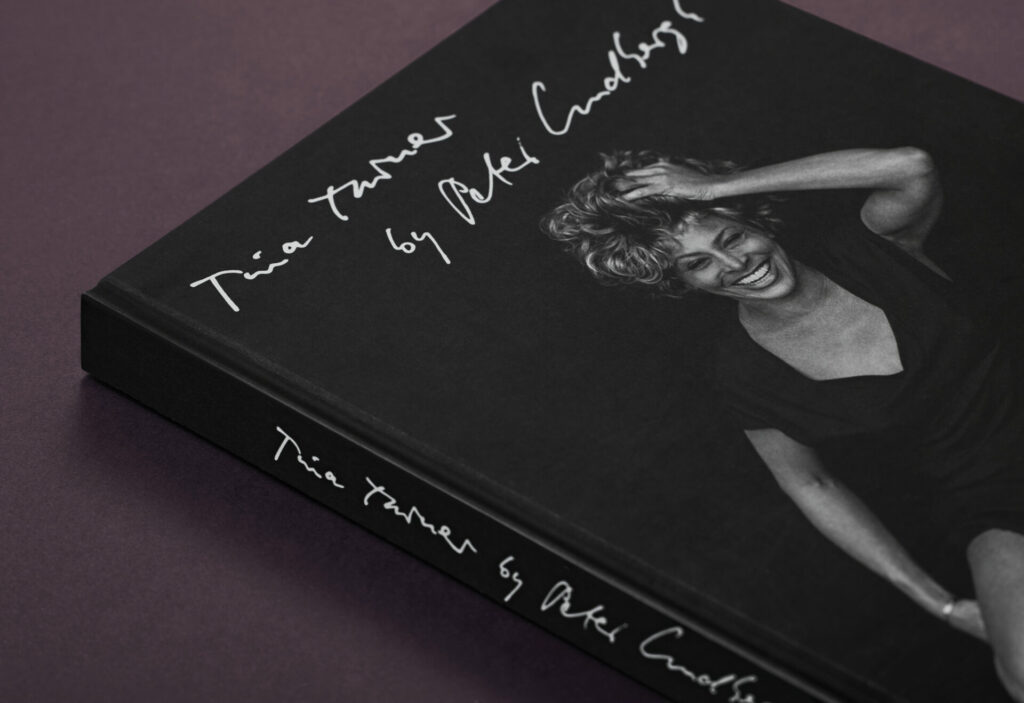 Tina Turner
by Peter Lindbergh
Tina Turner by Peter Lindbe